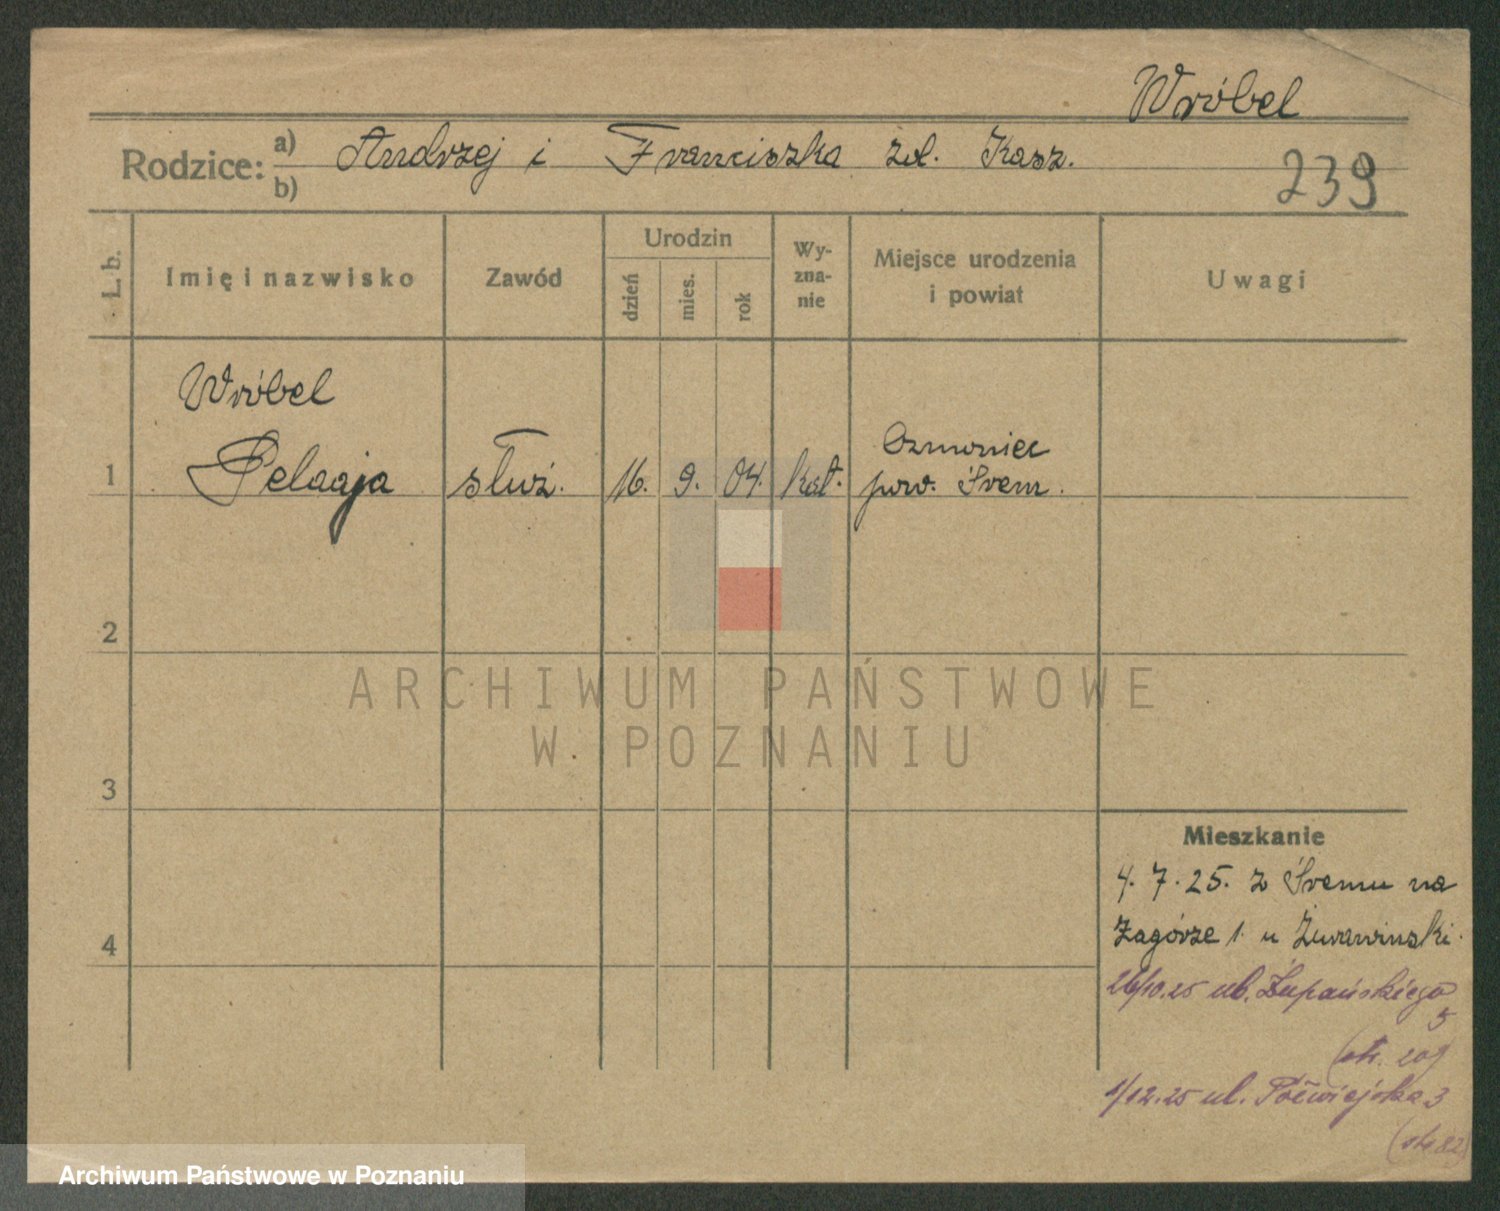 Wróbel
Rodzice: a) Andrzej i Franciszka żd. Kasz.
b)
239
L. b.
Imię i nazwisko
Zawód
Urodzin
dzień
mies.
rok
Wy-
zna-
nie
Miejsce urodzenia
i powiat
Uwagi
Wróbel
1 Pelagja służ. 16. 9. 04. kat.
pow. Śrem.
2
3
4
Mieszkanie
4. 7. 25. z Śremu na
Zagórze 1. u Żurawinski.
26/10.25 ul. Żupańskiego
5
(str. 209
1/12.25 ul. Półwiejska 3
(str 82)
ARCHIWUM PAŃSTWOWE
W POZNANIU
Archiwum Państwowe w Poznaniu